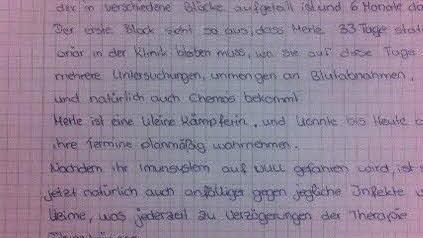 der in verschiedene Blöcke aufgeteilt ist und 6 Monate da
Der erste Block sieht so aus, dass Merle 33 Tage stati
onär in der Klinik bleiben muss, wo sie auf diese Tage
mehrere Untersuchungen, unmengen an Blutabnahmen,
und natürlich auch Chemos bekommt.
Merle ist eine kleine Kämpferin, und konnte bis Heute a
ihre Termine planmäßig wahrnehmen.
Nachdem ihr Imunsystem auf Null gefahren wird, ist
jetzt natürlich auch anfälliger gegen jegliche Infekte
Keime, was jederzeit zu Verzögerungen der Therapie